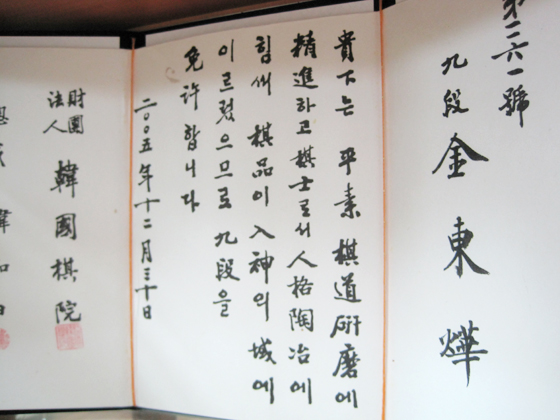 第二六一號
九段 金東燁
貴下는 平素 棋道硏磨에
精進하고 棋士로서 人格陶冶에
힘써 棋品이 入神의 域에
이르렀으므로 九段을
免許합니다
二〇〇五年十二月三十日
財團法人 韓國棋院